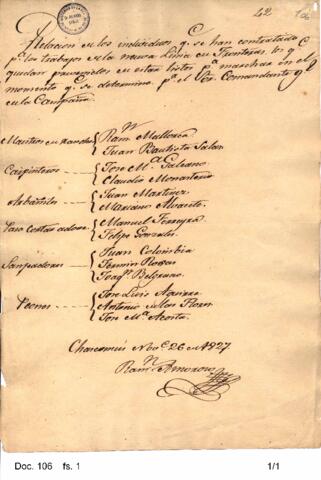 42 106
Relacion de los individuos q.e se han contratado
p.a los trabajos de la nueva Linea de Fronteras, los q.e
quedan prevenidos de estar listos p.a marchar en el
momento q.e se determine p.r el Sor. Comandante Gl
de la Campaña
Ram.n Mallorca
Juan Bautista
Carpinteros Jose M.a Galeano
Claudio Monasterio
Arbañiles Juan Martinez
Mariano Alvarito
Manuel Ferreyra
Felipe Gonzales
Sanjeadores Juan Colombia
Fermin Rosas
Joaq.n Belgrano
Peones Jose Luis Aguirre
Antonio de las Flores
Jose M.a Acosta
Chascomus Nov.e 26 de 1827
Ram.n
Doc. 106 fs. 1 1/1